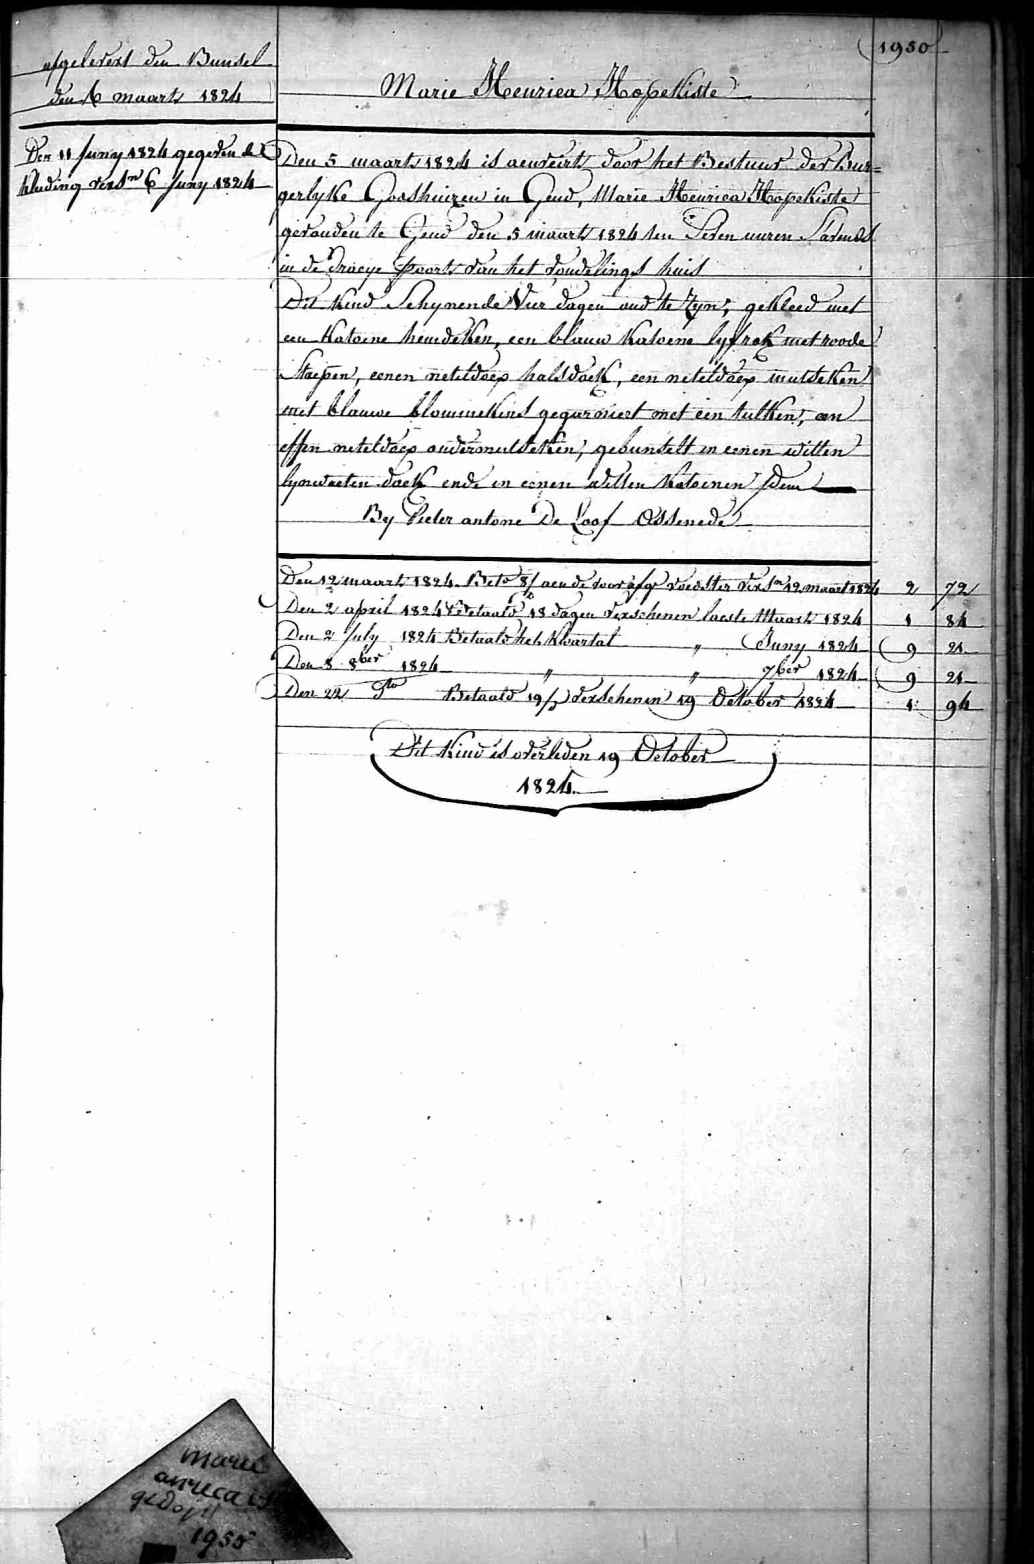 1950
afgelevert den Bunsel
den 6 maart 1824
Marie Henrica Hopekiste
Den 11 Juny 1824 gegeven de
kleding versn 6 Juny 1824
Den 5 maart 1824 is aenveirt door het Bestuur der Bur=
gerlyke Godshuizen in Gend, Marie Henrica Hopekiste
gevonden te Gend den 5 maart 1824 ten Seven uuren s'avends
in de draeye Poort van het vondelings huis
Dit kind Schynende Vier dagen oud te zyn; gekleed met
een Katoene hemdeken, een blauw Katoene lyfrok met roode
Streepen, eenen neteldoex halsdoek, een neteldoex mutseken
met blauwe blommekens gegarniert met een tulken, een
effen neteldoex ondermutseken, gebunselt in eenen witten
lynwaeten doek ende in eenen witten Katoenen idem
By Pieter antone De Loof Assenede
Den 12 maart 1824 Bete 8/ aen de voedster versn 12 maart 1824 2 72
Den 2 april 1824 Betaald 18 dagen verschenen laeste Maart 1824 1 84
Den 2 July 1824 Betaald het kwartal " Juny 1824 9 21
Den 8 8ber 1824 " " 7ber 1824 9 21
Den 22 dto Betaald 19/ verschenen 19 October 1824 1 94
Dit Kind is overleden 19 October
1824
marie
anrica
gedopt